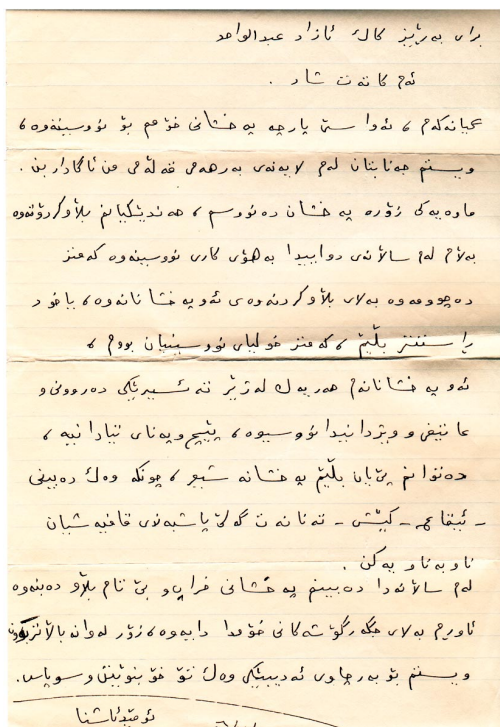 برای بەڕێز کاک ئازاد عبدالواحد
ئەم کاتەت شاد .
گیانەکەم ، ئەوا سێ پارچە پەخشانی خۆمم بۆ نووسینەوە ،
ویستم جەنابتان لەم لایەنەی بەرهەمی قەڵەمی من ئاگاداربن .
ماوەیەکی زۆرە پەخشان دەنووسم ، هەندێکیانم بڵاوکردۆتەوە
بەڵام لەم ساڵانەی دواییدا بەهۆی کاری نووسینەوە کەمتر
دەچوومەوە بەلای بڵاوکردنەوەی ئەو پەخشانانەوە ، یاخود
ڕاستتر بڵێم ، کەمتر خولیای نووسینیان بووم ،
ئەو پەخشانانەم هەریەک لەژێر تەئسیرێکی دەروونی و
عاتیفی و ویژدانیدا نووسیوە ، پێچ وپەنای تیادا نییە ،
دەتوانم پێیان بڵێم پەخشانە شیعر ، چونکە وەک دەبینی
- ئیقاعم - کێش - تەنانەت گەلێ پاشبەندی قافیەشیان
ناوبەناو یەکن .
لەم ساڵانەدا دەبینم پەخشانی خراپ و بێ تام بڵاو دەبنەوە
ئاوڕم بەلای جگەرگۆشەکانی خۆمدا دایەوە ، زۆر لەوانە باڵاتربوون
ویستم بۆ بەرچاوی ئەدیبێکی وەک تۆ خۆ بنوێنن و سوپاس .
ئومێد ئاشنا